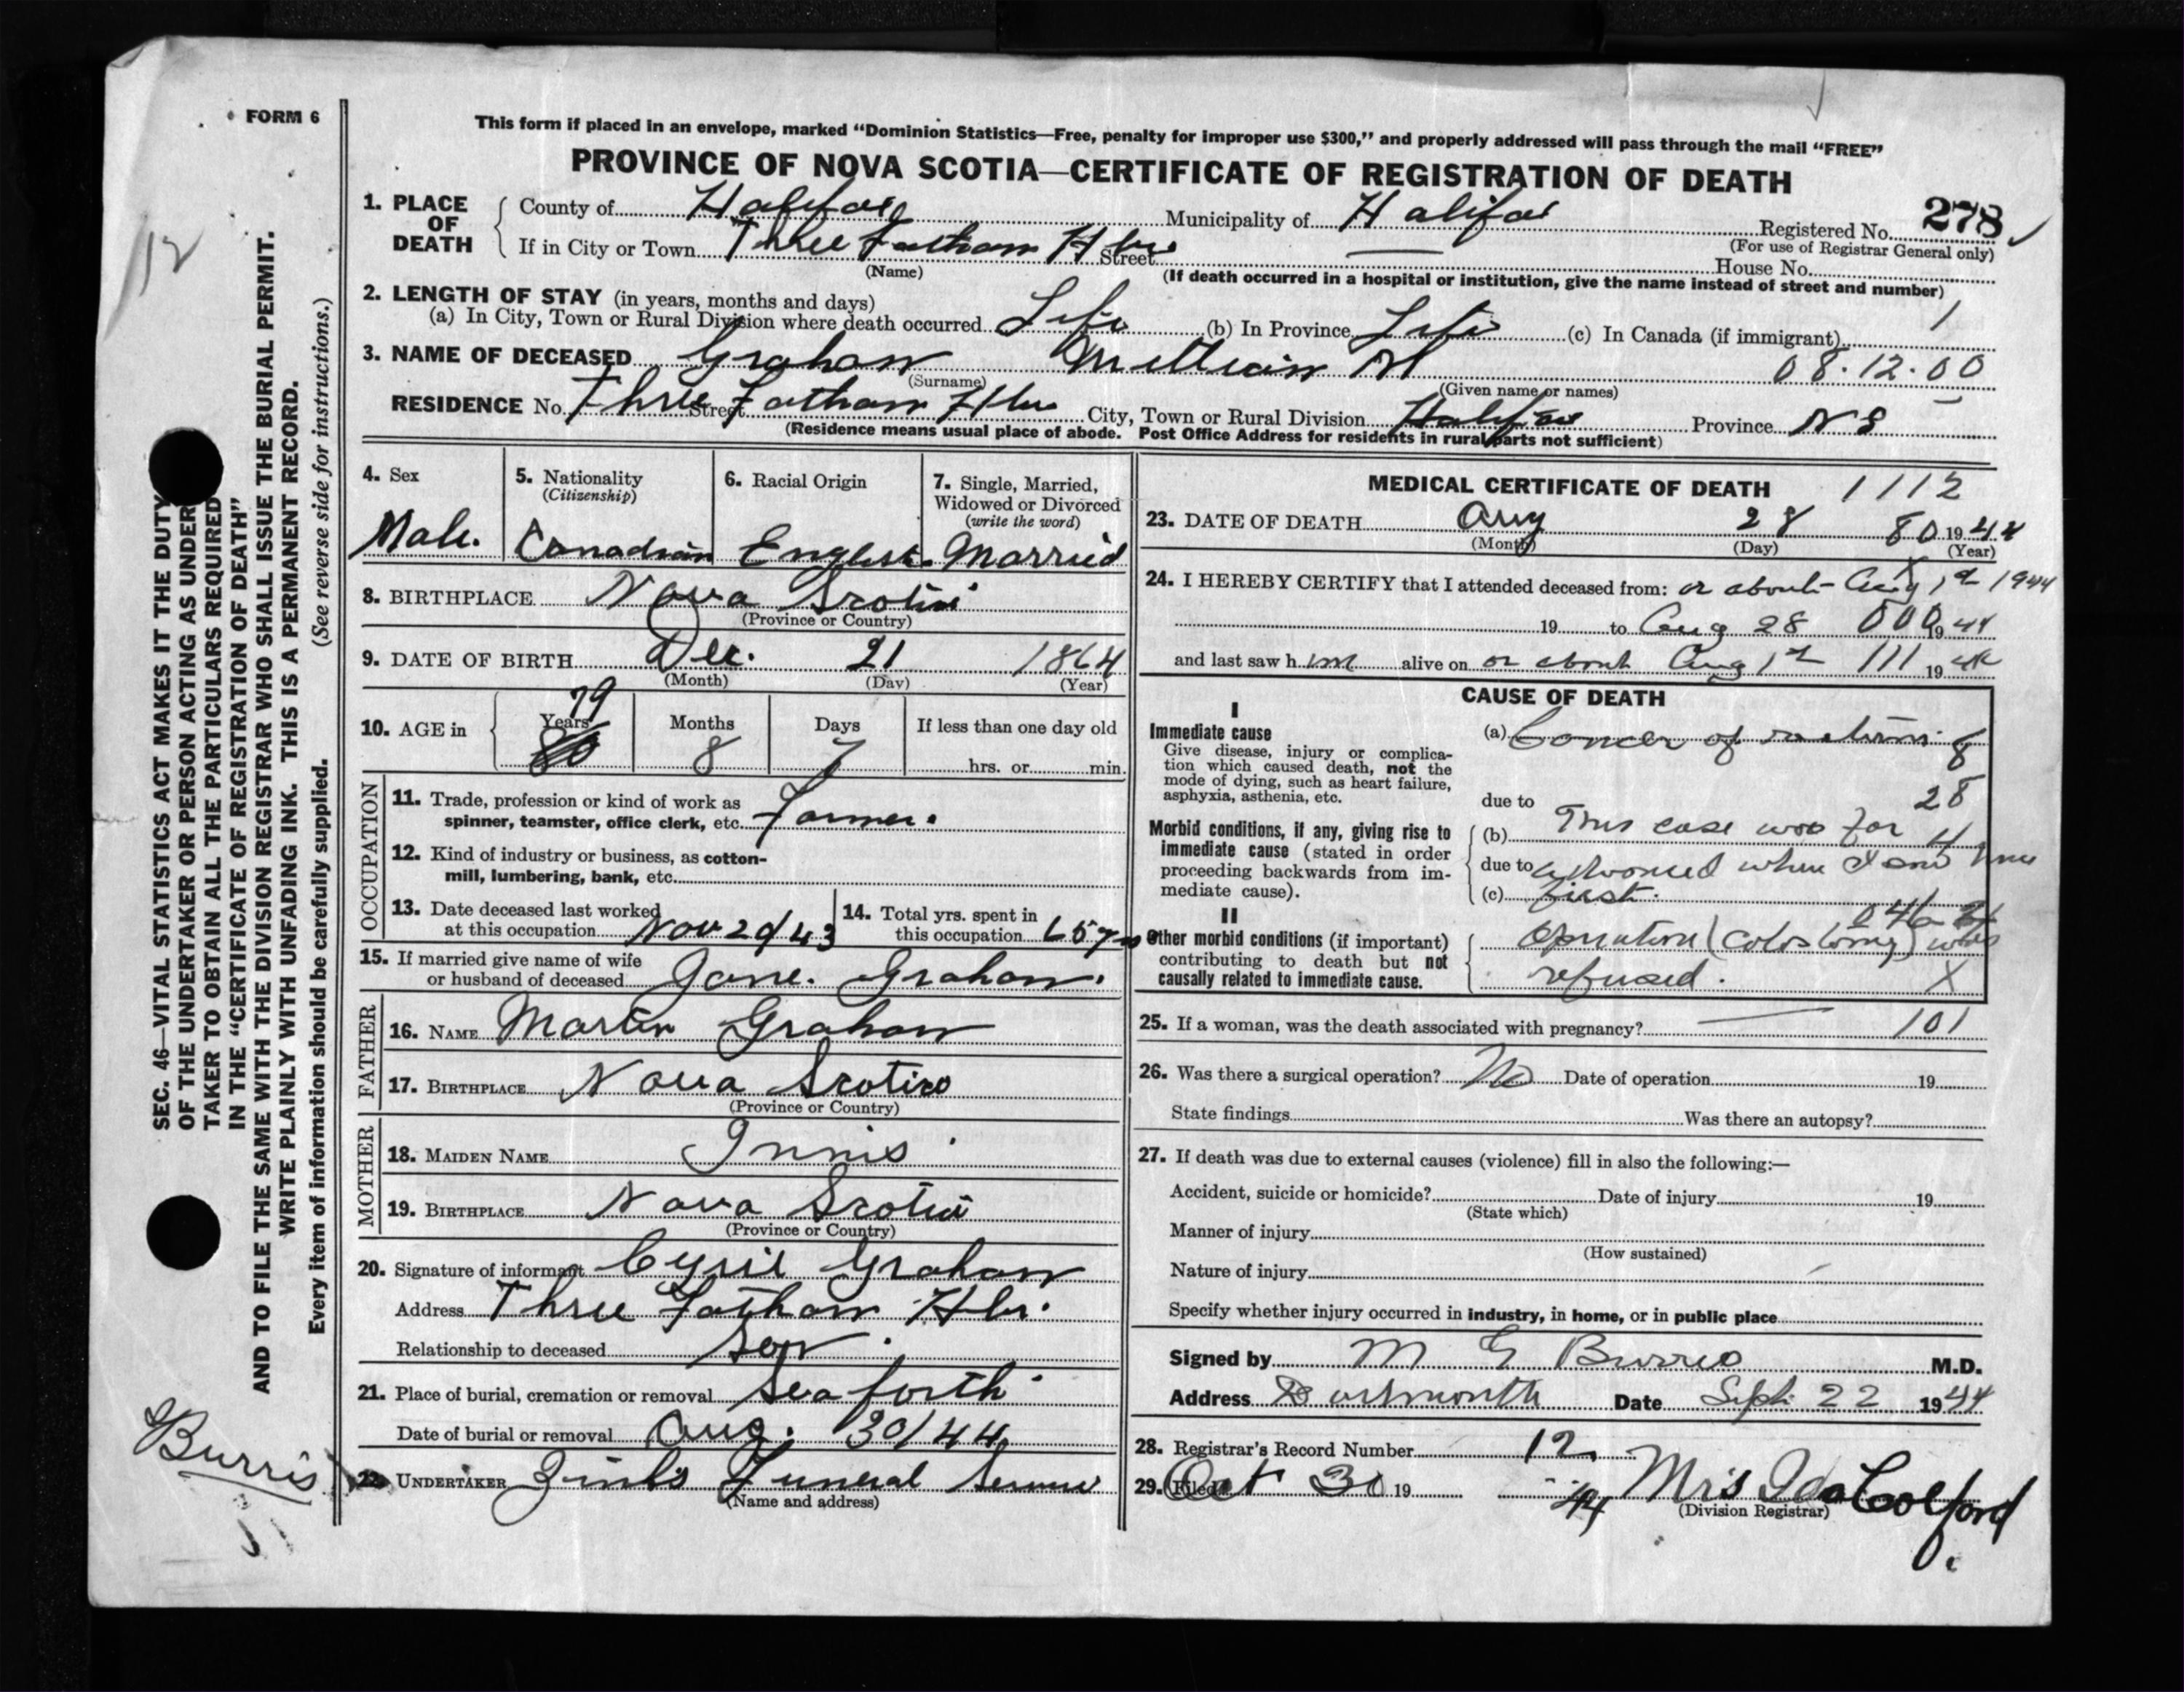 FORM 6
This form if placed in an envelope, marked “Dominion Statistics—Free, penalty for improper use $300,” and properly addressed will pass through the mail “FREE”
PROVINCE OF NOVA SCOTIA—CERTIFICATE OF REGISTRATION OF DEATH
1. PLACE OF DEATH County of Halifax Municipality of Halifax Registered No. 278
(For use of Registrar General only)
If in City or Town Three Fathom Hbr Street — House No.
(Name) (If death occurred in a hospital or institution, give the name instead of street and number)
2. LENGTH OF STAY (in years, months and days)
(a) In City, Town or Rural Division where death occurred Life (b) In Province Life (c) In Canada (if immigrant) 1
3. NAME OF DECEASED Graham M 08.12.00
(Surname) (Given name or names)
RESIDENCE No. Three Fathom Hbr Street City, Town or Rural Division Halifax Province N S
(Residence means usual place of abode. Post Office Address for residents in rural parts not sufficient)
4. Sex Male.
5. Nationality (Citizenship) Canadian
6. Racial Origin English.
7. Single, Married, Widowed or Divorced (write the word) Married
8. BIRTHPLACE Nova Scotia
(Province or Country)
9. DATE OF BIRTH Dec. 21 1864
(Month) (Day) (Year)
10. AGE in Years 79 80 Months 8 Days 7 If less than one day old
hrs. or min.
OCCUPATION
11. Trade, profession or kind of work as spinner, teamster, office clerk, etc. Farmer.
12. Kind of industry or business, as cotton-mill, lumbering, bank, etc.
13. Date deceased last worked at this occupation Nov 20/43
14. Total yrs. spent in this occupation 65 yrs
15. If married give name of wife or husband of deceased Jane. Graham.
FATHER
16. NAME Martin Graham
17. BIRTHPLACE Nova Scotia
(Province or Country)
MOTHER
18. MAIDEN NAME Innis
19. BIRTHPLACE Nova Scotia
(Province or Country)
20. Signature of informant Cyril Graham
Address Three Fathom Hbr.
Relationship to deceased Son.
21. Place of burial, cremation or removal Seaforth
Date of burial or removal Aug. 30/44
22. UNDERTAKER Zink's Funeral Service
(Name and address)
MEDICAL CERTIFICATE OF DEATH 1112
23. DATE OF DEATH Aug 28 80 1944
(Month) (Day) (Year)
24. I HEREBY CERTIFY that I attended deceased from: or about Aug 1st 1944
19 to Aug 28 000 1944
and last saw him alive on or about Aug 1st 111 1944
CAUSE OF DEATH
I
Immediate cause
Give disease, injury or complication which caused death, not the mode of dying, such as heart failure, asphyxia, asthenia, etc.
(a) Cancer of rectum 8
due to 28
Morbid conditions, if any, giving rise to immediate cause (stated in order proceeding backwards from immediate cause).
(b) This case was far 4
due to advanced when I saw him
(c) first.
II
Other morbid conditions (if important) contributing to death but not causally related to immediate cause.
046
Operation (colostomy) was
refused. X
25. If a woman, was the death associated with pregnancy? — 101
26. Was there a surgical operation? No Date of operation 19
State findings Was there an autopsy?
27. If death was due to external causes (violence) fill in also the following:—
Accident, suicide or homicide? Date of injury 19
(State which)
Manner of injury
(How sustained)
Nature of injury
Specify whether injury occurred in industry, in home, or in public place
Signed by M G Burris M.D.
Address Dartmouth Date Sept 22 1944
28. Registrar's Record Number 12.
29. Filed Oct 30 19 44 Mrs Ida Colford
(Division Registrar)
SEC. 46—VITAL STATISTICS ACT MAKES IT THE DUTY
OF THE UNDERTAKER OR PERSON ACTING AS UNDER
TAKER TO OBTAIN ALL THE PARTICULARS REQUIRED
IN THE “CERTIFICATE OF REGISTRATION OF DEATH”
AND TO FILE THE SAME WITH THE DIVISION REGISTRAR WHO SHALL ISSUE THE BURIAL PERMIT.
WRITE PLAINLY WITH UNFADING INK. THIS IS A PERMANENT RECORD.
Every item of information should be carefully supplied. (See reverse side for instructions.)
112
Burris